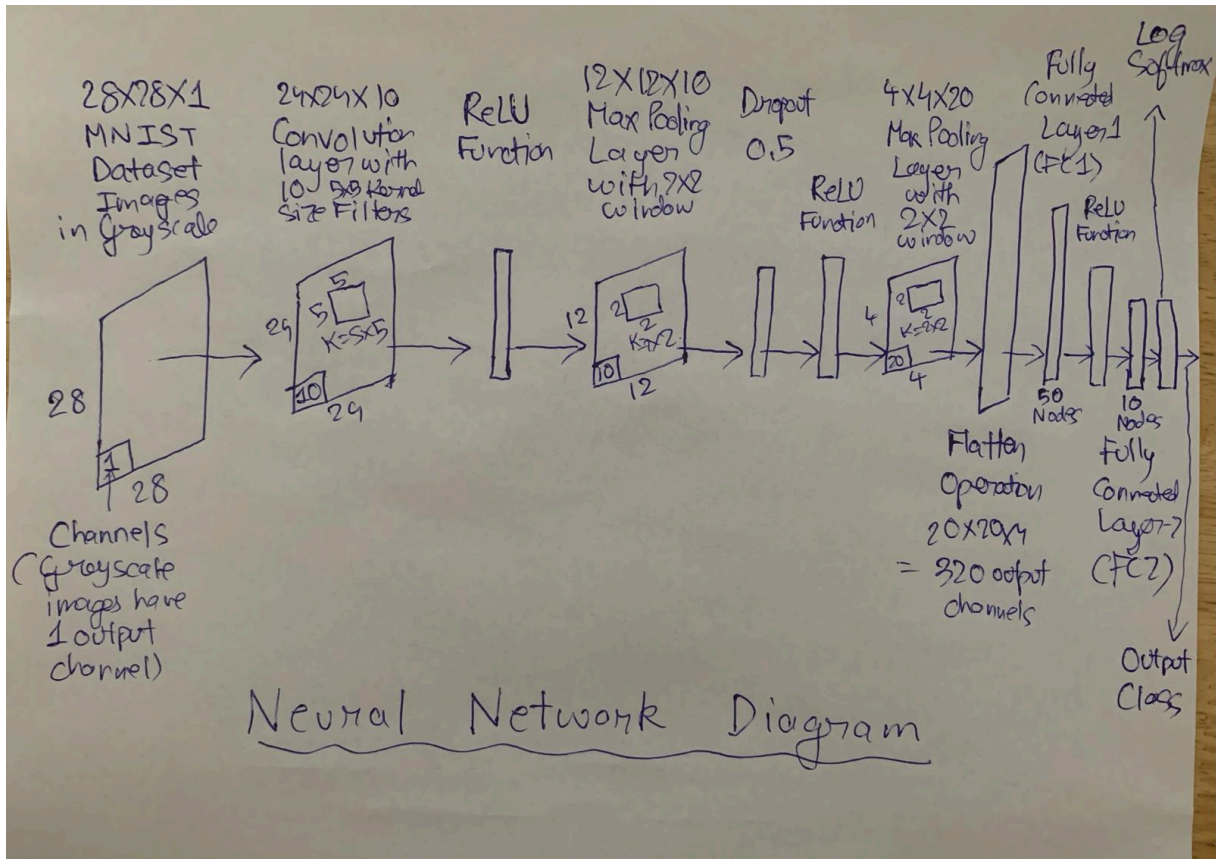 28X28X1
MNIST
Dataset
Images
in Grayscale
28
1
28
Channels
(Grayscale
images have
1 output
channel)
24X24X10
Convolution
layer with
10 5x5 Kernel
Size Filters
5
5
K=5x5
24
10
24
ReLU
Function
12X12X10
Max Pooling
Layer
with 2X2
window
12
2
2
K=2x2
10
12
Dropout
0.5
ReLU
Function
4X4X20
Max Pooling
Layer
with
2X2
window
4
2
2
K=2x2
20
4
Flatten
Operation
= 320 output
channels
Fully
Connected
Layer1
(FC1)
50
Nodes
ReLU
Function
10
Nodes
Fully
Connected
Layer-2
(FC2)
Log
Softmax
Output
Class
Neural Network Diagram